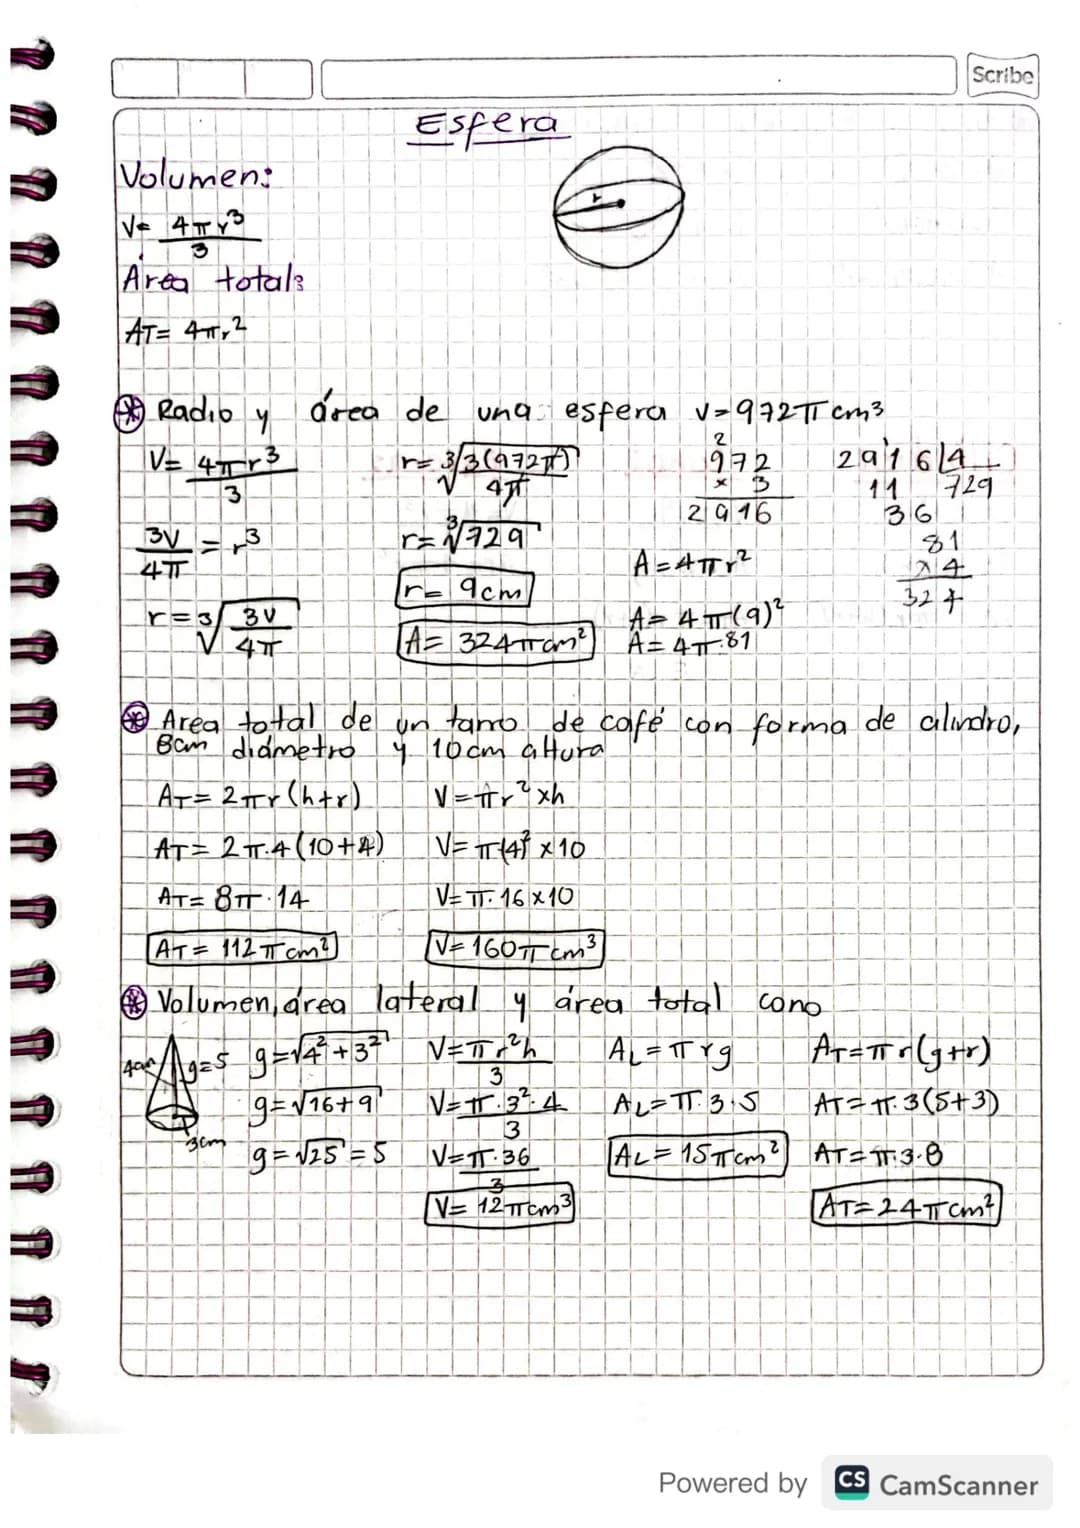 Scribe
Esfera
Volumen:
V= 4πr³/3
r
Área total:
AT= 4πr²
Radio y área de una esfera v=972π cm³
V= 4πr³/3
3V/4π = r³
r=³√(3V/4π)
r= ³√(3(972π)/4π)
r= ³√729
r= 9cm
A= 324πcm²
2
972
x 3
2916
A=4πr²
A= 4π(9)²
A= 4π·81
2916 4
11 729
36
81
x4
324
Area total de un tarro de café con forma de cilindro,
8cm diámetro y 10cm altura
AT= 2πr(h+r)
AT= 2π·4(10+4)
AT= 8π·14
AT= 112πcm²
V=πr² xh
V= π(4)² x10
V= π·16x10
V= 160πcm³
Volumen, área lateral y área total cono
4cm
g=5
3cm
g=√4²+3²
g=√16+9
g=√25=5
V=πr²h/3
V=π·3²·4/3
V=π·36/3
V= 12πcm³
AL=πrg
AL=π·3·5
AL= 15πcm²
AT=πr(g+r)
AT=π·3(5+3)
AT=π·3·8
AT=24πcm²
Powered by CS CamScanner